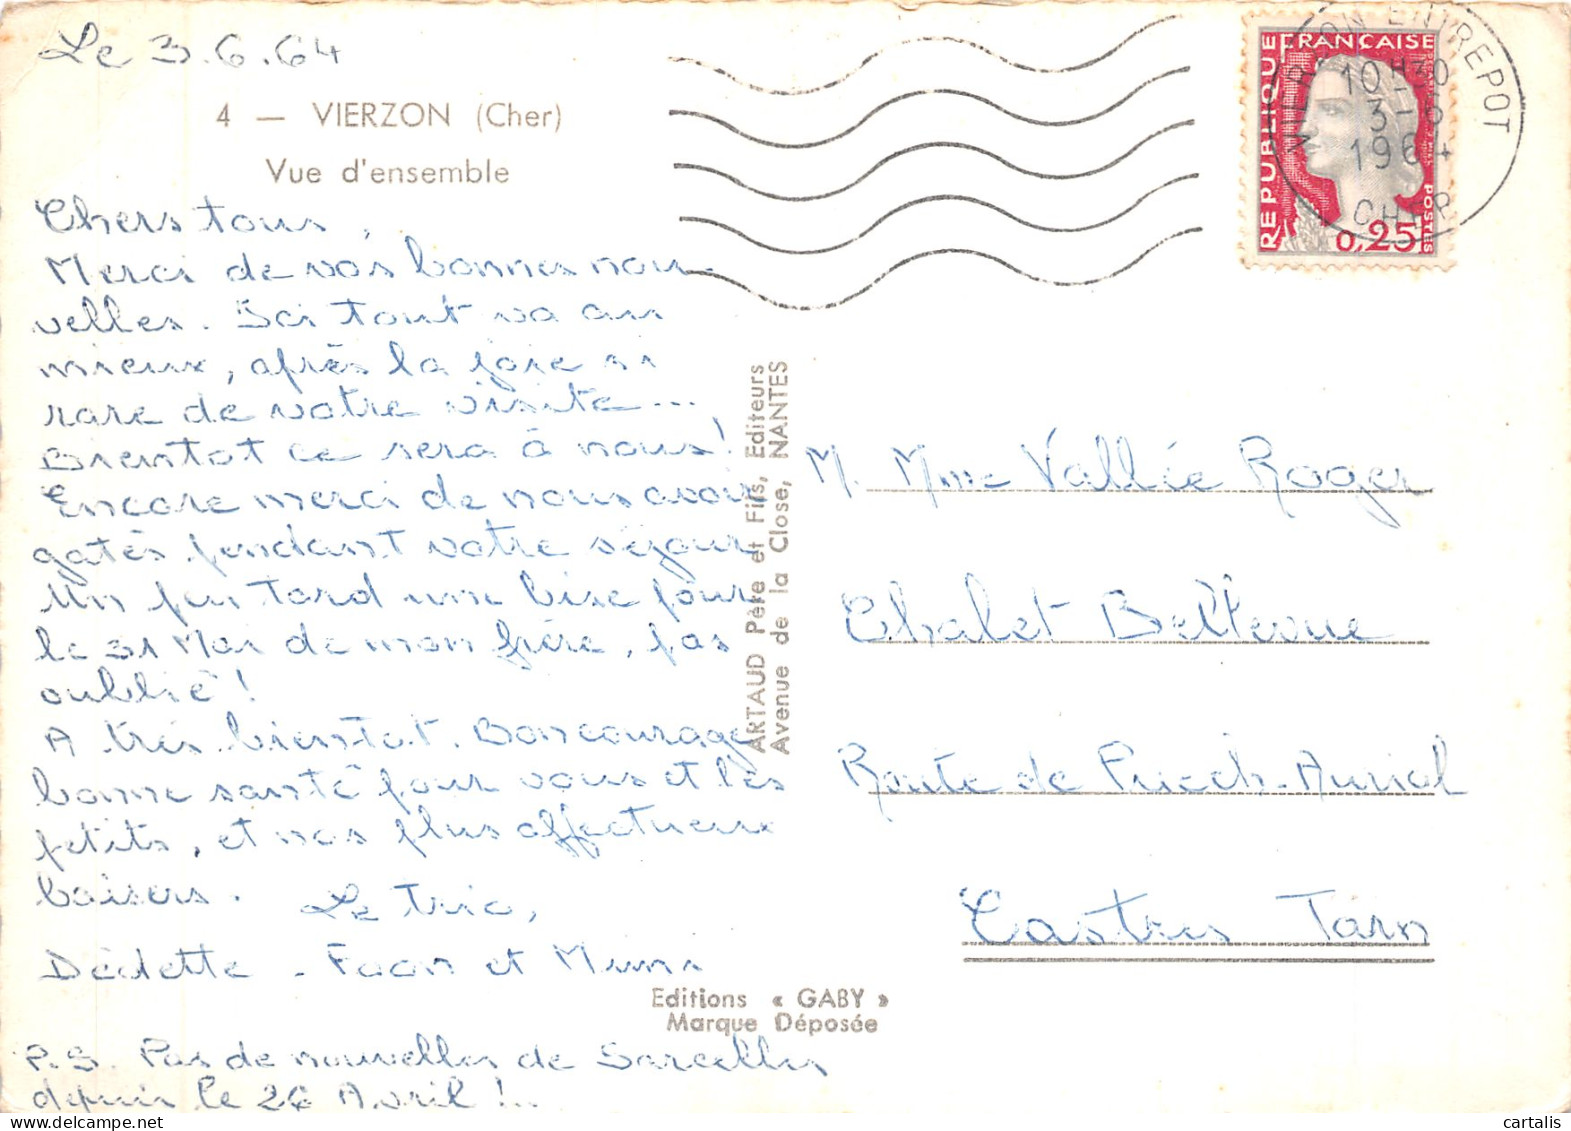 Le 3.6.64
4 — VIERZON (Cher)
Vue d'ensemble
Chers tous,
Merci de vos bonnes nou-
velles. Ici tout va au
mieux, après la joie si
rare de votre visite...
Bientot ce sera à nous!
Encore merci de nous avoir
gatés pendant votre séjour
Un peu tard une bise pour
le 31 Mai de mon frère, pas
oublié!
A très bientot. Bon courage
bonne santé pour vous et les
petits, et nos plus affectueux
baisers. Le trio,
Dédette - Faon et Mimi
P.S. Pas de nouvelles de Sarcelles
depuis le 26 Avril!..
ARTAUD Père et Fils, Editeurs
Avenue de la Close, NANTES
Editions « GABY »
Marque Déposée
REPUBLIQUE FRANÇAISE
POSTES
0,25
VIERZON ENTREPOT
10 H30
3 - 6
1964
CHER
M. Mme Vallée Roger
Chalet Bellevue
Route de Puech-Auriol
Castres Tarn
cartalis